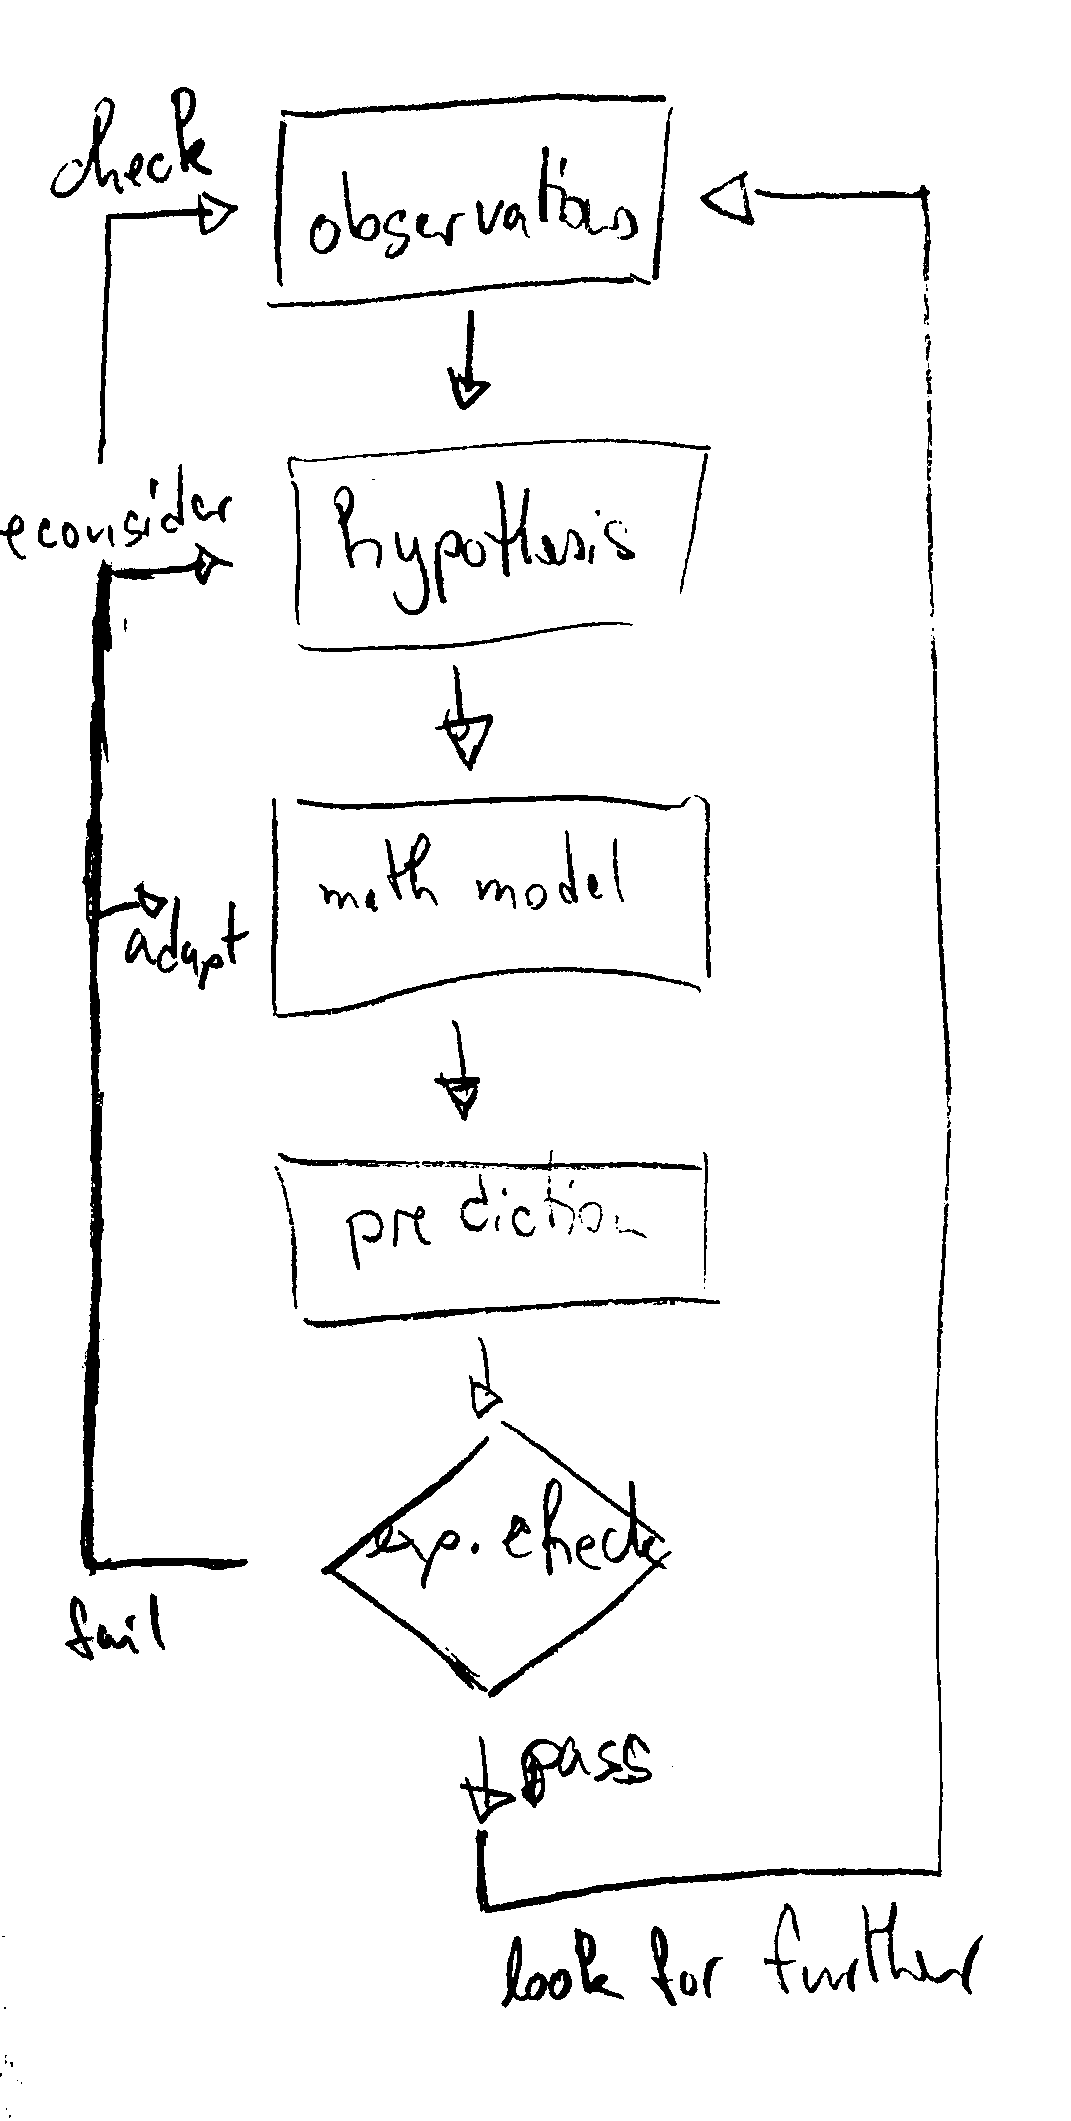 check
observations
econsider
hypothesis
math model
adapt
prediction
exp. check
fail
pass
look for further